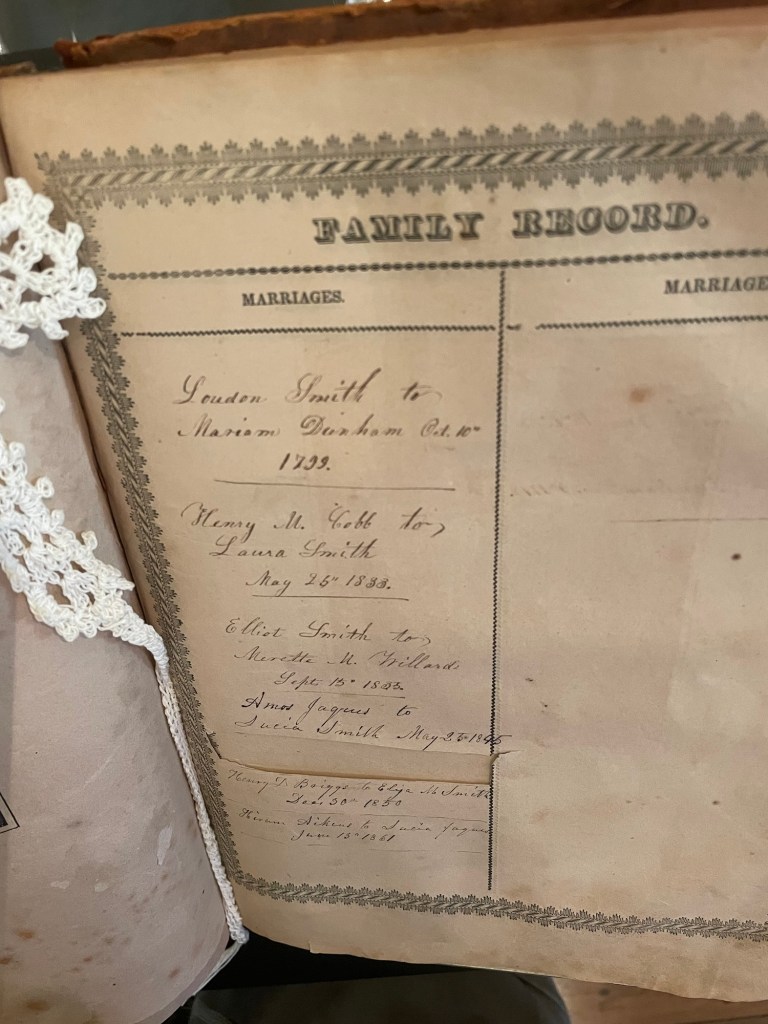 FAMILY RECORD.
MARRIAGES.
Loudon Smith to
Mariam Dunham Oct. 10th
1799.
Henry M. Cobb to
Laura Smith
May 25th 1833.
Elliot Smith to
Merette M. Willard
Sept 15th 1835.
Amos Jaques to
Lucia Smith May 25th 1845
Henry D. Briggs to Eliza M Smith
Dec. 30th 1850
Hiram Aikens to Lucia Jaques
June 13th 1861
MARRIAGE